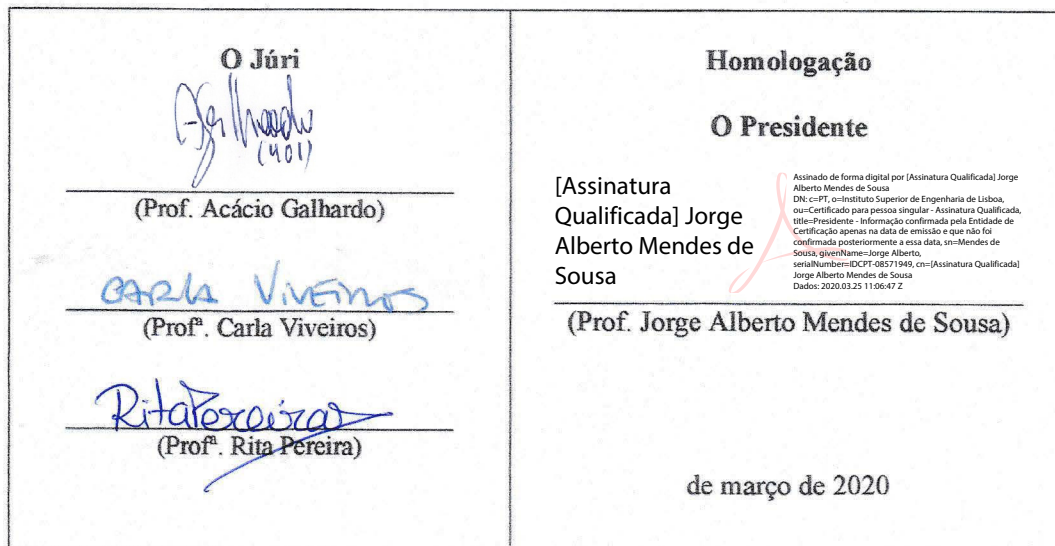 O Júri
(401)
(Prof. Acácio Galhardo)
CARLA VIVEIROS
(Profª. Carla Viveiros)
Rita Pereira
(Profª. Rita Pereira)
Homologação
O Presidente
[Assinatura
Qualificada] Jorge
Alberto Mendes de
Sousa
Assinado de forma digital por [Assinatura Qualificada] Jorge
Alberto Mendes de Sousa
DN: c=PT, o=Instituto Superior de Engenharia de Lisboa,
ou=Certificado para pessoa singular - Assinatura Qualificada,
title=Presidente - Informação confirmada pela Entidade de
Certificação apenas na data de emissão e que não foi
confirmada posteriormente a essa data, sn=Mendes de
Sousa, givenName=Jorge Alberto,
serialNumber=IDCPT-08571949, cn=[Assinatura Qualificada]
Jorge Alberto Mendes de Sousa
Dados: 2020.03.25 11:06:47 Z
(Prof. Jorge Alberto Mendes de Sousa)
de março de 2020